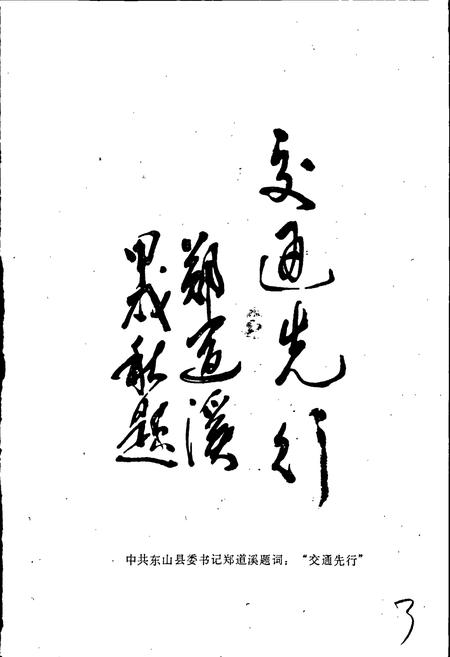 交通先行
郑道溪
甲戌秋题
中共东山县委书记郑道溪题词：“交通先行”